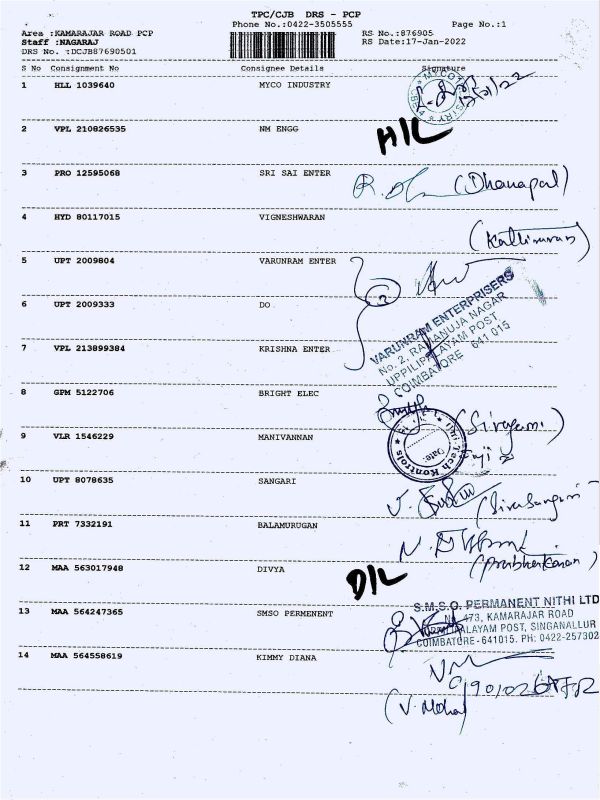 TPC/CJB DRS - PCP
Phone No.:0422-3505555 Page No.:1
Area :KAMARAJAR ROAD PCP RS No.:876905
Staff :NAGARAJ RS Date:17-Jan-2022
DRS No. :DCJB87690501
S No Consignment No Consignee Details Signature
1 HLL 1039640 MYCO INDUSTRY
2 VPL 210826535 NM ENGG H/L
3 PRO 12595068 SRI SAI ENTER (Dhanapal)
4 HYD 80117015 VIGNESHWARAN
5 UPT 2009804 VARUNRAM ENTER
6 UPT 2009333 DO
VARUNRAM ENTERPRISERS
No. 2, RAMANUJA NAGAR
UPPILIPALAYAM POST,
COIMBATORE - 641 015
7 VPL 213899384 KRISHNA ENTER
8 GPM 5122706 BRIGHT ELEC
9 VLR 1546229 MANIVANNAN
10 UPT 8078635 SANGARI
11 PRT 7332191 BALAMURUGAN
12 MAA 563017948 DIVYA D/L
(Prabhakaran)
13 MAA 564247365 SMSO PERMENENT
S.M.S.O. PERMANENT NITHI LTD
473, KAMARAJAR ROAD
POST, SINGANALLUR
COIMBATORE - 641015. PH: 0422-257302
14 MAA 564558619 KIMMY DIANA
(V. Mohan)